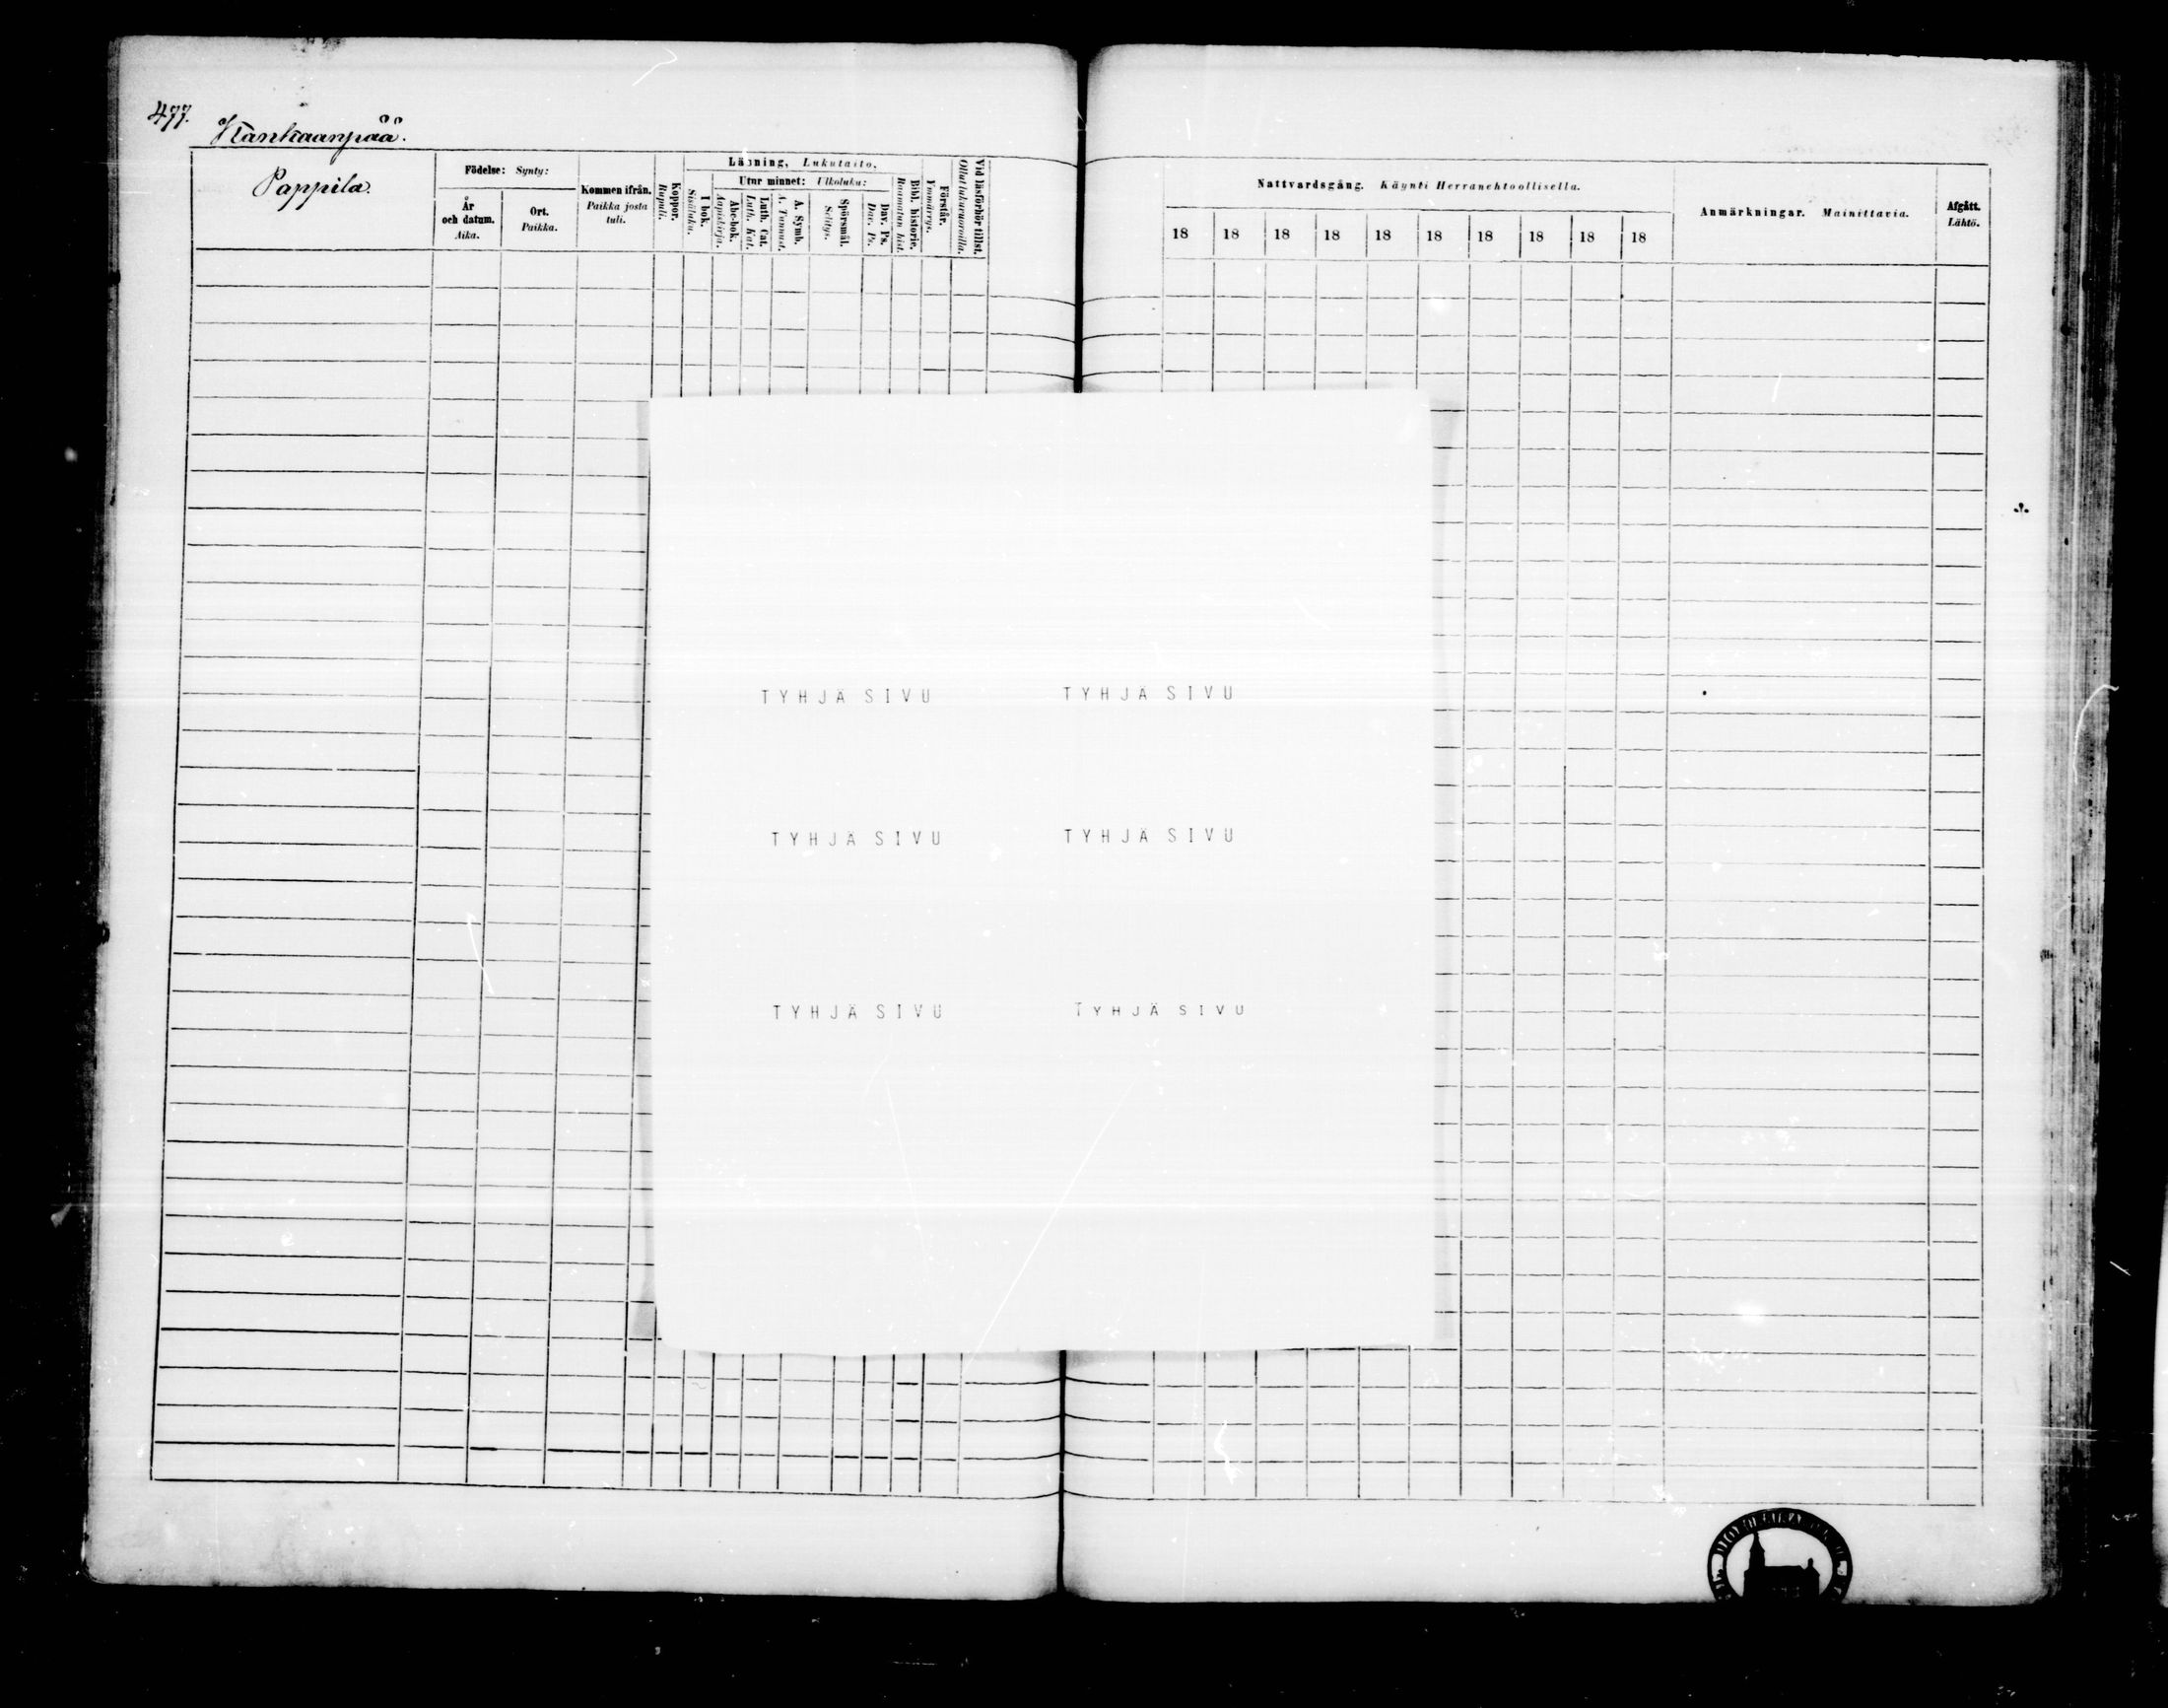 477.
Kankaanpää.
Pappila.
Födelse: Synty:
År och datum. Aika.
Ort. Paikka.
Kommen ifrån. Paikka josta tuli.
Koppor. Rupuli.
Läsning, Lukutaito.
I bok. Sisäluku.
Utur minnet: Ulkoluku:
Abc-bok. Aapiskirja.
Luth. Cat. Luth. Kat.
A. Symb. A. Tunnust.
Spörsmål. Selitys.
Dav. Ps. Dav. Ps.
Bibl. historie. Raamatun hist.
Förstår. Ymmärrys.
Vid läsförhör tillst. Ollut lukuvuoroilla.
Nattvardsgång. Käynti Herranehtoollisella.
18 18 18 18 18 18 18 18 18 18
Anmärkningar. Mainittavia.
Afgått. Lähtö.
TYHJÄ SIVU TYHJÄ SIVU
TYHJÄ SIVU TYHJÄ SIVU
TYHJÄ SIVU TYHJÄ SIVU